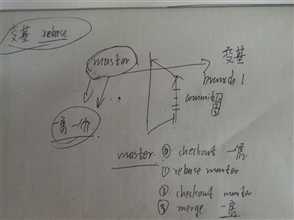 变基 rebase
master
变基
branch 1
commit
master ⓪ checkout
① rebase master
② checkout master
③ merge